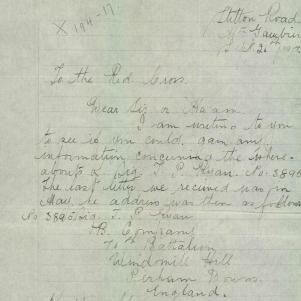 Sutton Road
Mt Gambier
To the Red Cross
Dear Sir or Madam
I am writing to you
to see if you could gain any
information concerning the where-
abouts of Sig. No. 3895
The last letter we received was in
May, the address was then as follows
No 3895 Sig.
B. Company
Battalion
Windmill Hill
Perham Downs
England.